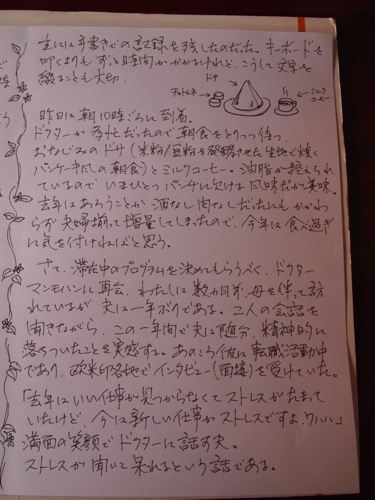 主には手書きでの記録を残したのだった。キーボードを
叩くよりも ずっと時間がかかるけれど、こうして文字を
綴ることも大切。
ドサ
チャトネ
ミルク
コーヒー
昨日は朝10時ごろに到着。
ドクターが外だったので朝食をとりつつ待つ。
おなじみのドサ(米粉/豆粉を発酵させた生地で焼く
パンケーキ風の朝食)とミルクコーヒー。油脂が控えられ
ているので いまひとつ パンチに欠ける風味だが美味。
去年はあろうことか 酒なし 肉なしだったにもかかわ
らず 夫婦揃って増量してしまったので、今年は食べ過ぎ
に気を付けねばと思う。
さて、滞在中のプログラムを決めてもらうべく、ドクター
マンモハンに再会。わたしは数か月ず、母を伴って訪
れているが 夫は一年ぶりである。二人の会話を
聞きながら、この一年間で夫は随分、精神的に
落ちついたことを実感する。あのころ彼は転職活動中
であり、欧米印各地でインタビュー(面接)を受けていた。
「去年はいい仕事が見つからなくてストレスがたまって
いたけど、今は新しい仕事がストレスですよ、ワハハ」
満面の笑顔で ドクターに話す夫。
ストレスが聞いて呆れるという話である。